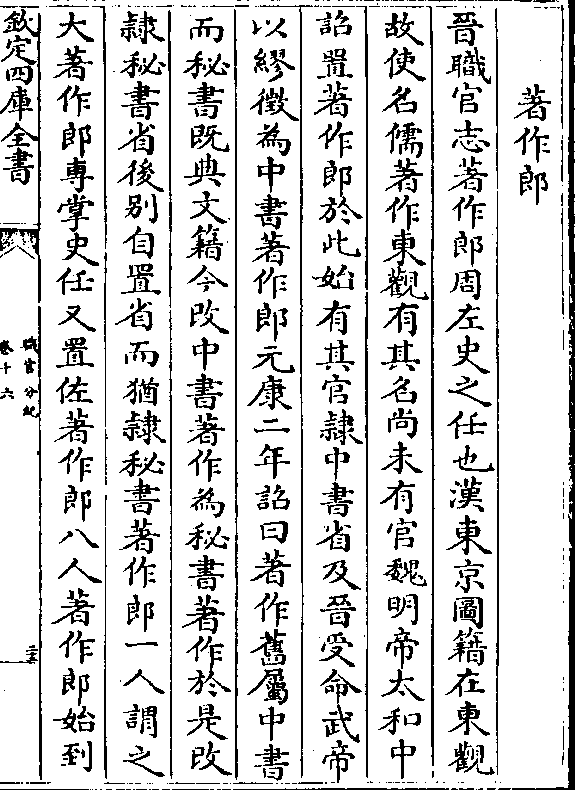 著作郎
晉職官志著作郎周左史之任也漢東京圖籍在東觀
故使名儒著作東觀有其名尚未有官魏明帝太和中
詔置著作郎於此始有其官隷中書省及晉受命武帝
以繆徵為中書著作郎元康二年詔曰著作舊屬中書
而秘書既典文籍今改中書著作為秘書著作於是改
隷秘書省後别自置省而猶隷秘書著作郎一人謂之
大著作郎専掌史任又置佐著作郎八人著作郎始到
欽定四庫全書
職官分紀
卷十六